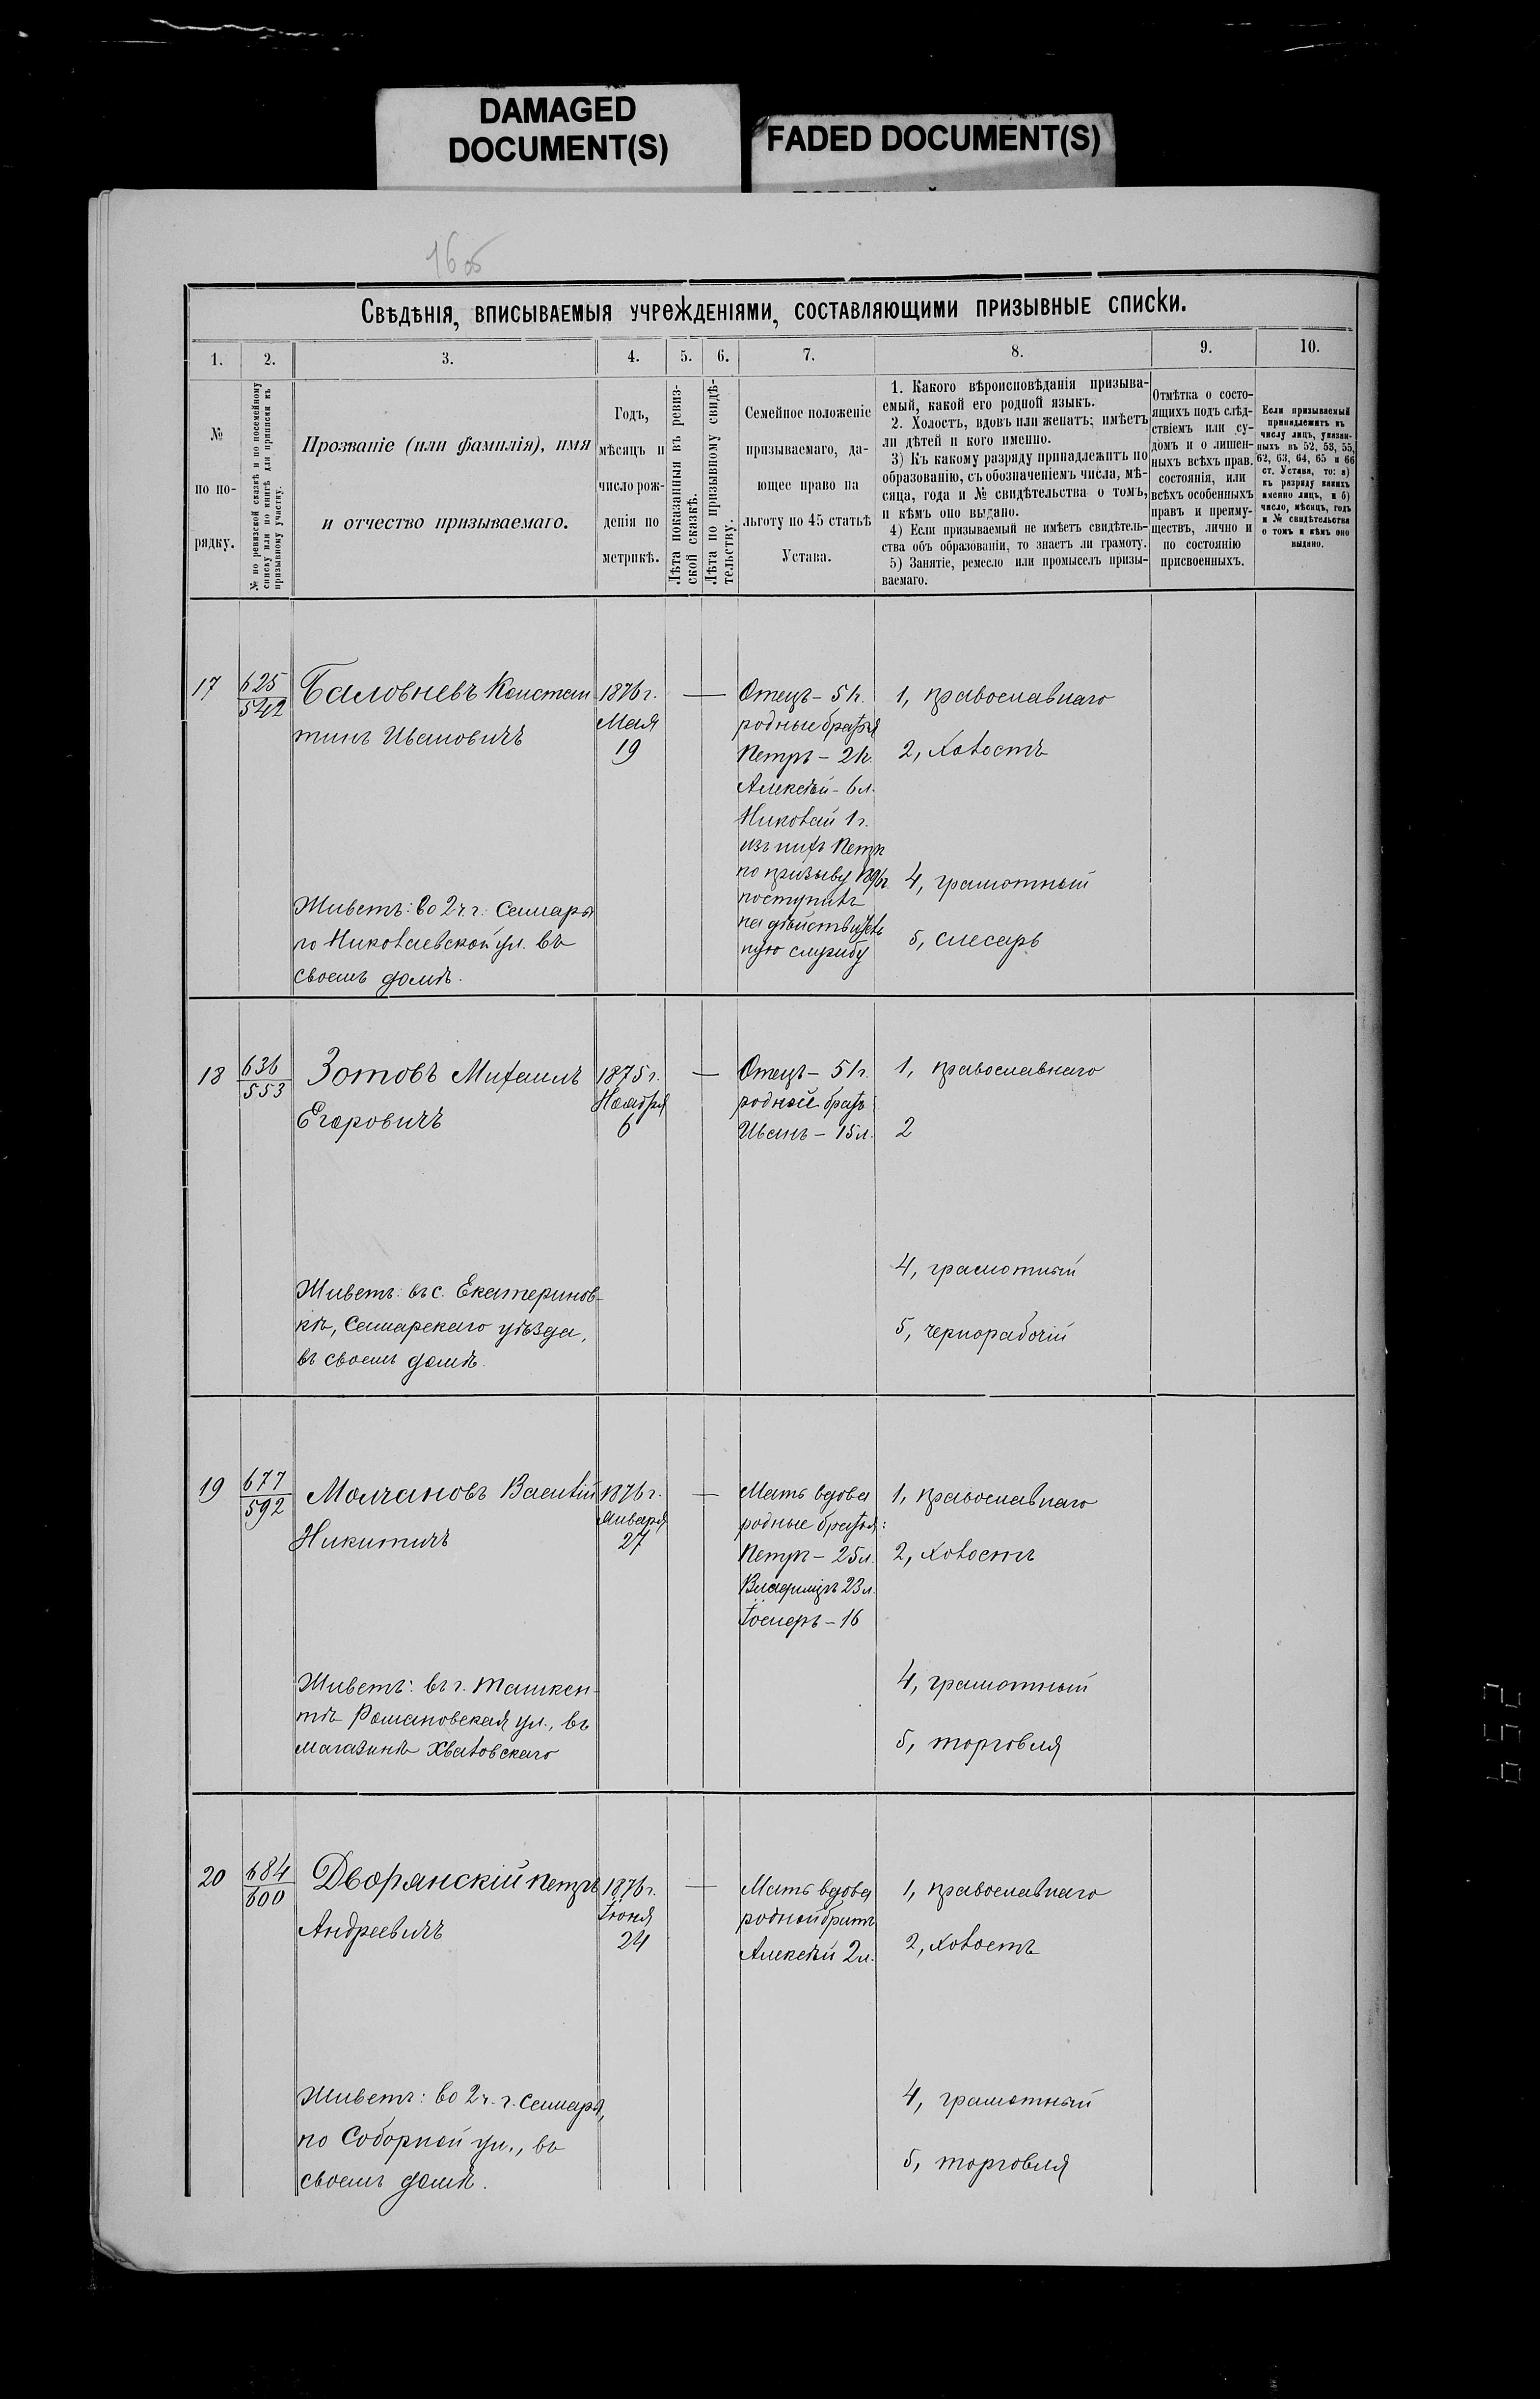 DAMAGED
DOCUMENT(S)
FADED DOCUMENT(S)
16 об
Свѣдѣнія, вписываемыя учрежденіями, составляющими призывные списки.
1.
2.
3.
4.
5.
6.
7.
8.
9.
10.
№
по по-
рядку.
№ по ревизской сказкѣ и по посемейному
списку или по книгѣ для приписки къ
призывному участку.
Прозваніе (или фамилія), имя
и отчество призываемаго.
Годъ,
мѣсяцъ и
число рож-
денія по
метрикѣ.
Лѣта показанныя въ ревиз-
ской сказкѣ.
Лѣта по призывному свидѣ-
тельству.
Семейное положеніе
призываемаго, да-
ющее право на
льготу по 45 статьѣ
Устава.
1. Какого вѣроисповѣданія призыва-
емый, какой его родной языкъ.
2. Холостъ, вдовъ или женатъ; имѣетъ
ли дѣтей и кого именно.
3) Къ какому разряду принадлежитъ по
образованію, съ обозначеніемъ числа, мѣ-
сяца, года и № свидѣтельства о томъ,
и кѣмъ оно выдано.
4) Если призываемый не имѣетъ свидѣтель-
ства объ образованіи, то знаетъ ли грамоту.
5) Занятіе, ремесло или промыселъ призы-
ваемаго.
Отмѣтка о состо-
ящихъ подъ слѣд-
ствіемъ или су-
домъ и о лишен-
ныхъ всѣхъ прав.
состоянія, или
всѣхъ особенныхъ
правъ и преиму-
ществъ, лично и
по состоянію
присвоенныхъ.
Если призываемый
принадлежитъ къ
числу лицъ, указан-
ныхъ въ 52, 53, 55,
62, 63, 64, 65 и 66
ст. Устава, то: а)
къ разряду какихъ
именно лицъ, и б)
число, мѣсяцъ, годъ
и № свидѣтельства
о томъ и кѣмъ оно
выдано.
17
625
542
Баловневъ Констан
тинъ Ивановичъ
Живетъ: во 2 ч. г. Самары
по Николаевской ул. въ
своемъ домѣ.
1876 г.
Мая
19
—
Отецъ – 51 г.
родные братья
Петръ – 21 г.
Алексѣй – 6 л.
Николай 1 г.
изъ нихъ Петръ
по призыву 1896 г.
поступилъ
на дѣйствитель
ную службу
1, православнаго
2, холостъ
4, грамотный
5, слесарь
18
636
553
Зотовъ Михаилъ
Егоровичъ
Живетъ: въ с. Екатеринов-
кѣ, Самарскаго уѣзда,
въ своемъ домѣ.
1875 г.
Ноября
6
—
Отецъ – 51 г.
родной братъ
Иванъ – 15 л.
1, православнаго
2
4, грамотный
5, чернорабочій
19
677
592
Молчановъ Василій
Никитичъ
Живетъ: въ г. Ташкен-
тѣ Романовская ул., въ
магазинѣ Хватовскаго
1876 г.
Января
27
—
Мать вдова
родные братья:
Петръ – 25 л.
Владиміръ 23 л.
– 16
1, православнаго
2, холостъ
4, грамотный
5, торговля
20
684
600
Дворянскій Петръ
Андреевичъ
Живетъ: во 2 ч. г. Самары,
по Соборной ул., въ
своемъ домѣ.
1876 г.
Іюня
24
—
Мать вдова
родной братъ
Алексѣй 2 л.
1, православнаго
2, холостъ
4, грамотный
5, торговля
659